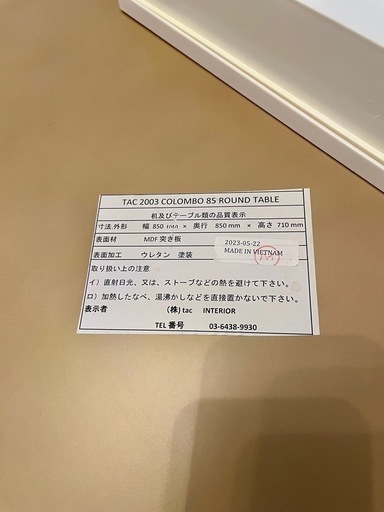 TAC 2003 COLOMBO 85 ROUND TABLE
机及びテーブル類の品質表示
寸法.外形 幅 850 mm × 奥行 850 mm × 高さ 710 mm
表面材 MDF 突き板
2023-05-22
MADE IN VIETNAM
表面加工 ウレタン 塗装
取り扱い上の注意
イ）直射日光、又は、ストーブなどの熱を避けて下さい。
ロ）加熱したなべ、湯沸かしなどを直接置かないで下さい。
表示者 (株) tac INTERIOR
TEL 番号 03-6438-9930